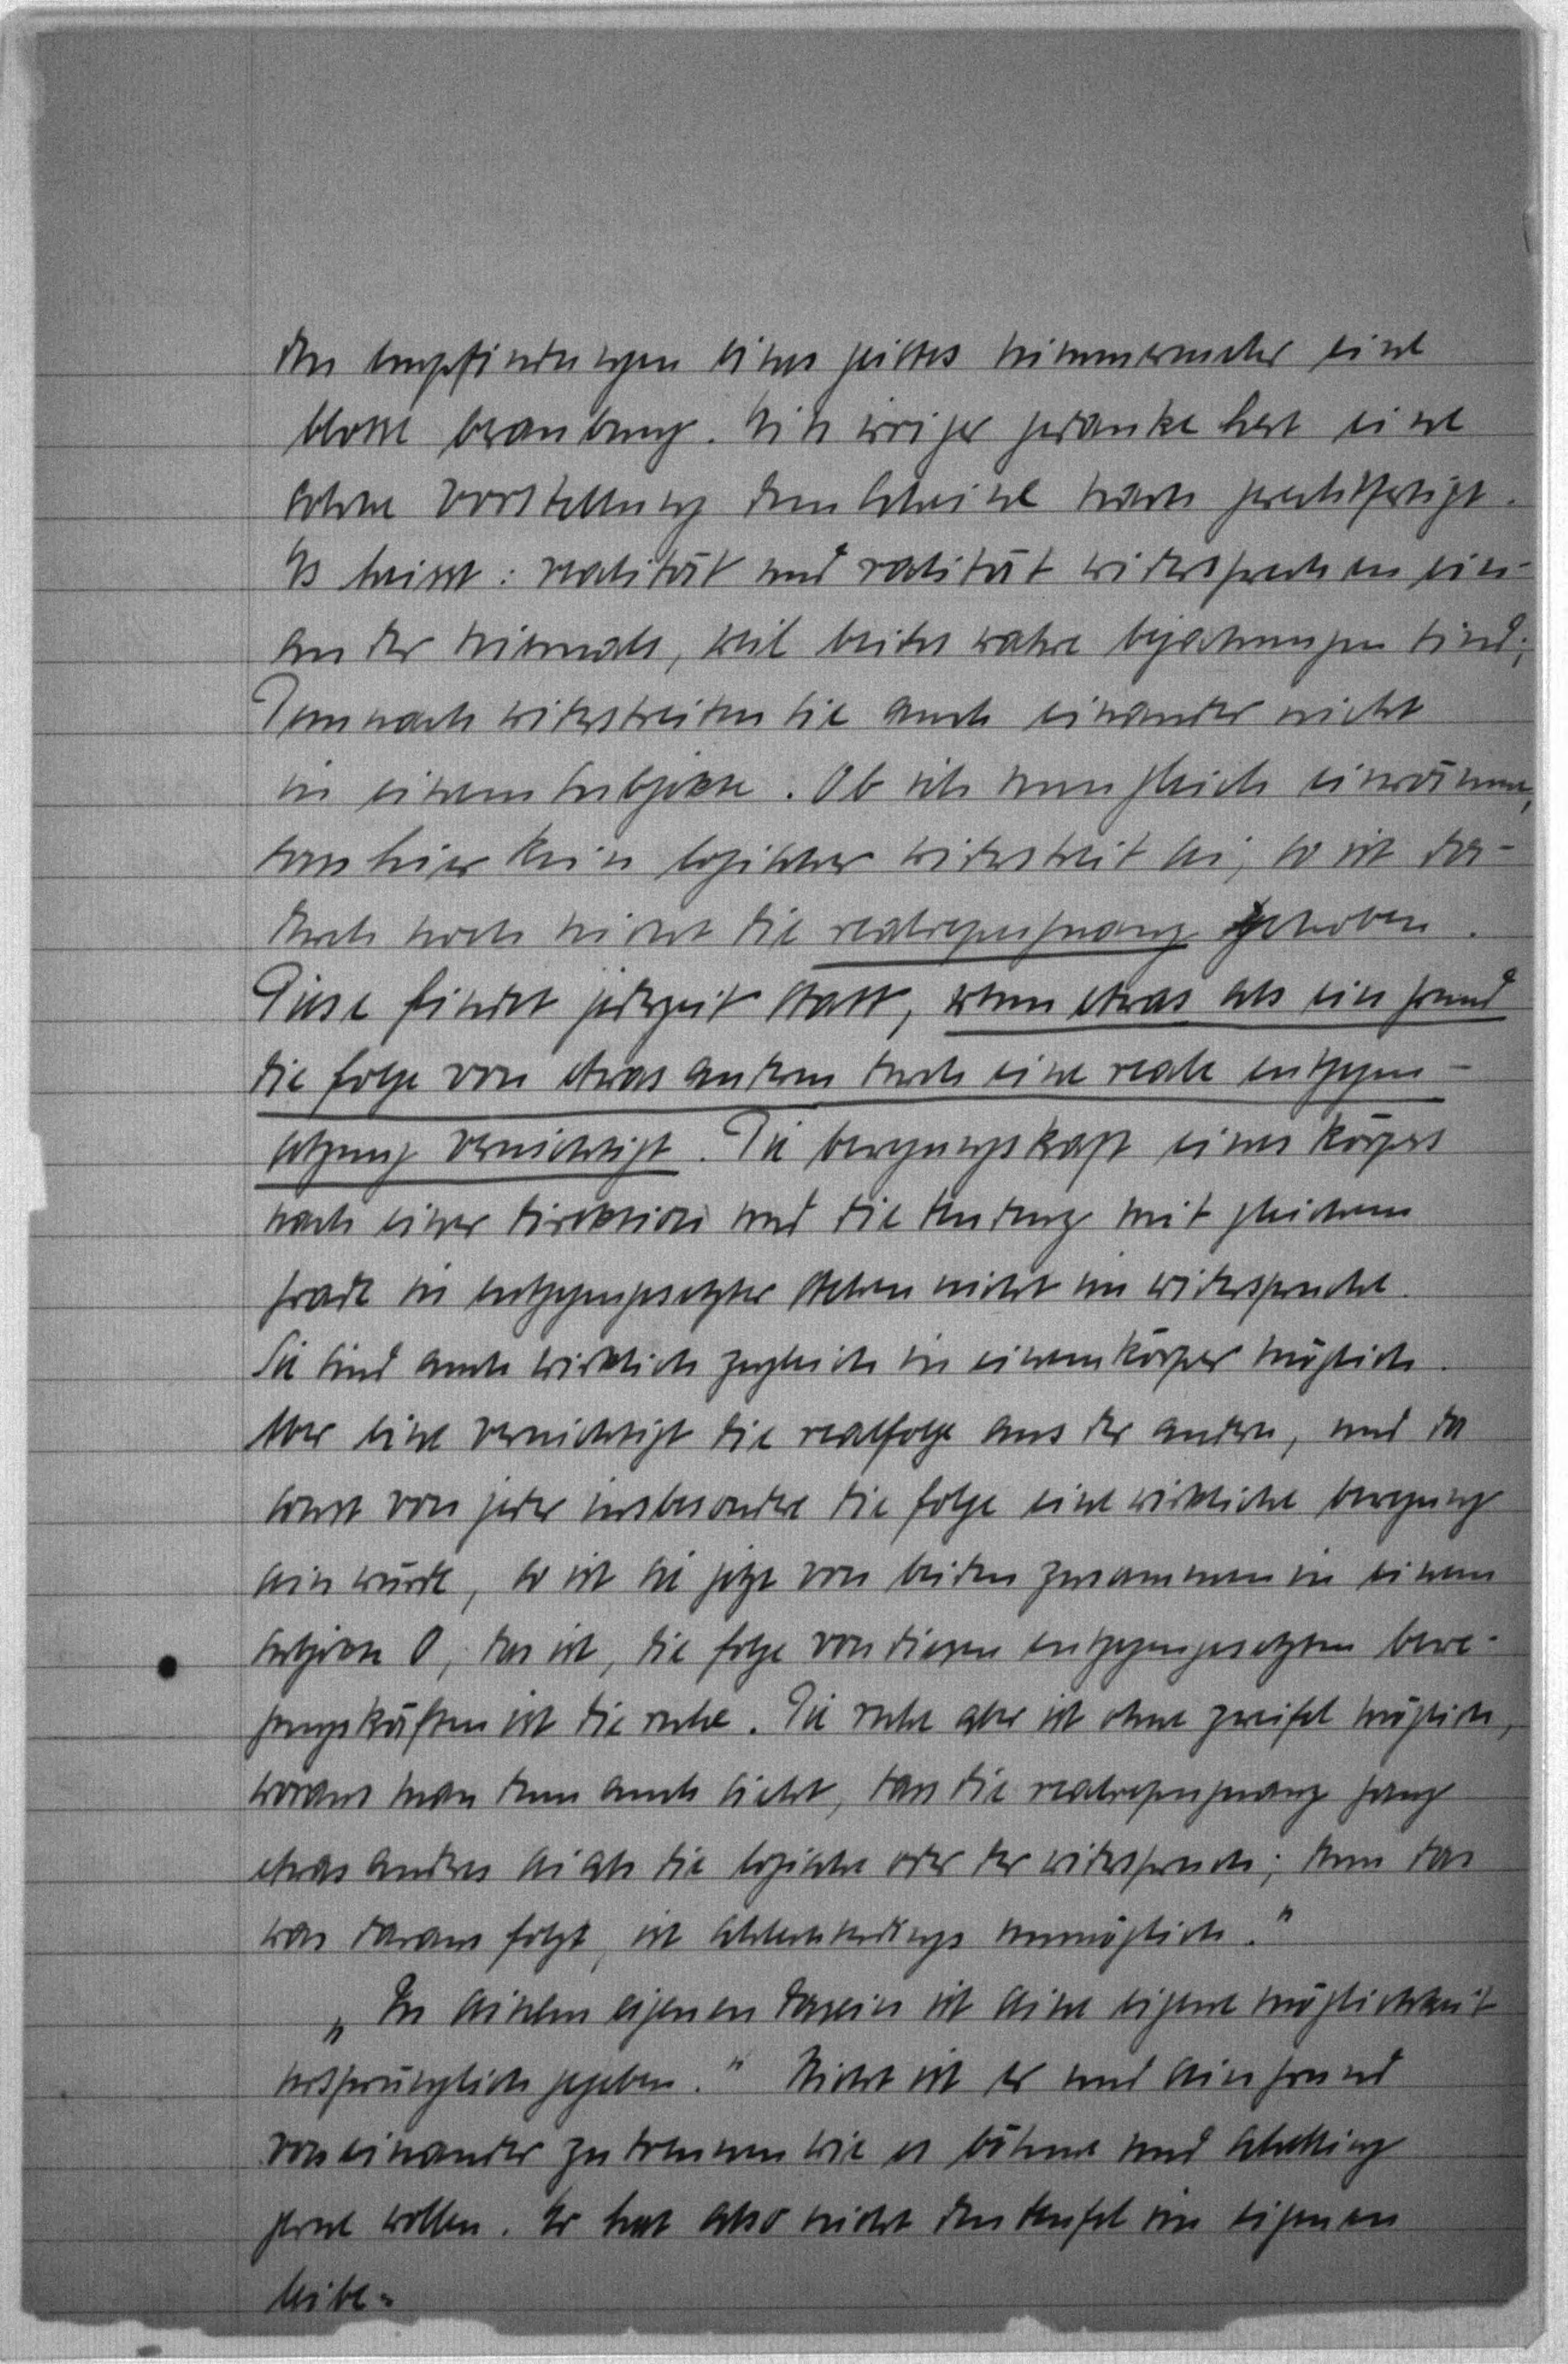 den empfindungen eines geistes nimmermehr eine
blosse beraubung. Ein irriger gedanke hat eine
solche vorstellung dem scheine nach gerechtfertigt.
Es heisst: realität und ralität widersprechen ein-
ander niemals, weil beides wahre bejahungen sind;
Demnach widerstreiten sie auch einander nicht
in einem subjekte. Ob ich nun gleich einräume,
dass hier kein logischer widerstreit sei, so ist da-
durch noch nicht die realrepugnanz gehoben.
Diese findet jederzeit statt, wenn etwas als ein grund
die folge von etwas anderm durch eine reale entgegen-
setzung vernichtigt. Die bewegungskraft eines körpers
nach einer direktion und die tendenz mit gleichem
grade in entgegengesetzter stehen nicht im widerspruche.
Sie sind auch wirklich zugleich in einem körper möglich.
Aber eine vernichtigt die realfolge aus der andern, und da
sonst von jeder insbesondere die folge eine wirkliche bewegung
sein würde, so ist sie jetzt von beiden zusammen in einem
subjekte 0, das ist, die folge von diesen entgegengesetzten bewe-
gungskräften ist die ruhe. Die ruhe aber ist ohne zweifel möglich,
woraus man denn auch sieht, dass die realrepugnanz ganz
etwas anders sei als die logische oder der widerspruch; denn das
was daraus folgt, ist schlechterdings unmöglich."
„In seinem eigenen dasein ist seine eigene möglichkeit
ursprünglich gegeben." Nicht ist er und sein grund
voneinander zu trennen wie es böhme und schelling
gerne wollen. Er hat also nicht den teufel im eigenen
leibe.